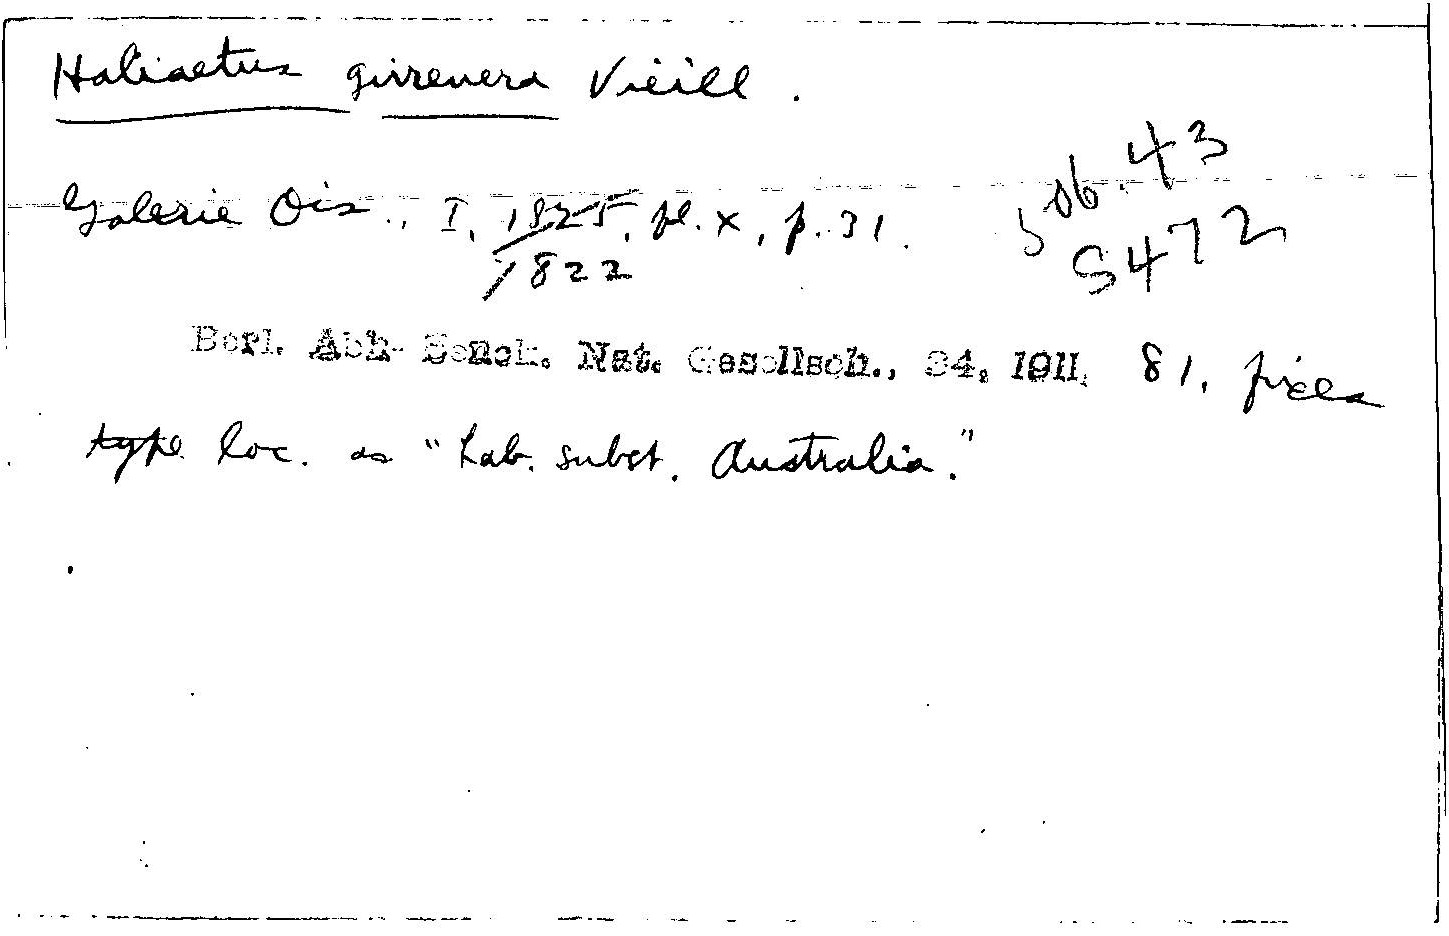 Haliaetus girrenera Vieill.
506.43
Galerie Ois., I, 1825, pl. x, p. 31.
S472
1822
Berl. Abh. Senck. Nat. Gesellsch., 34, 1911, 81, fixes
type loc. as "hab. subst. Australia."